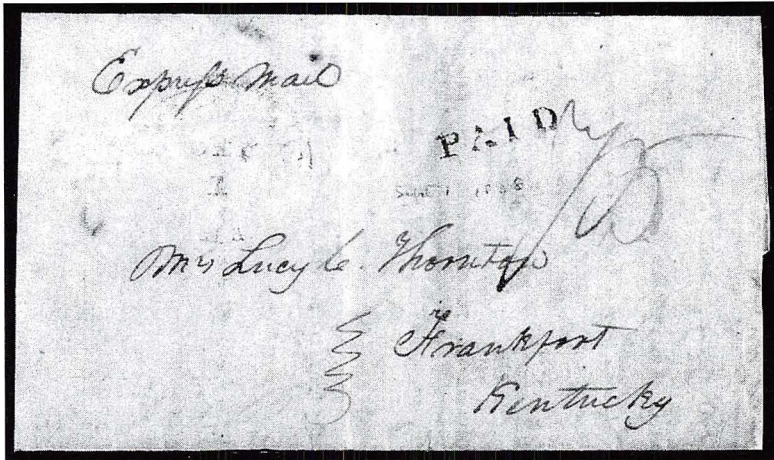 Express Mail
PAID 75
Mrs Lucy C. Thornton
Frankfort
Kentucky